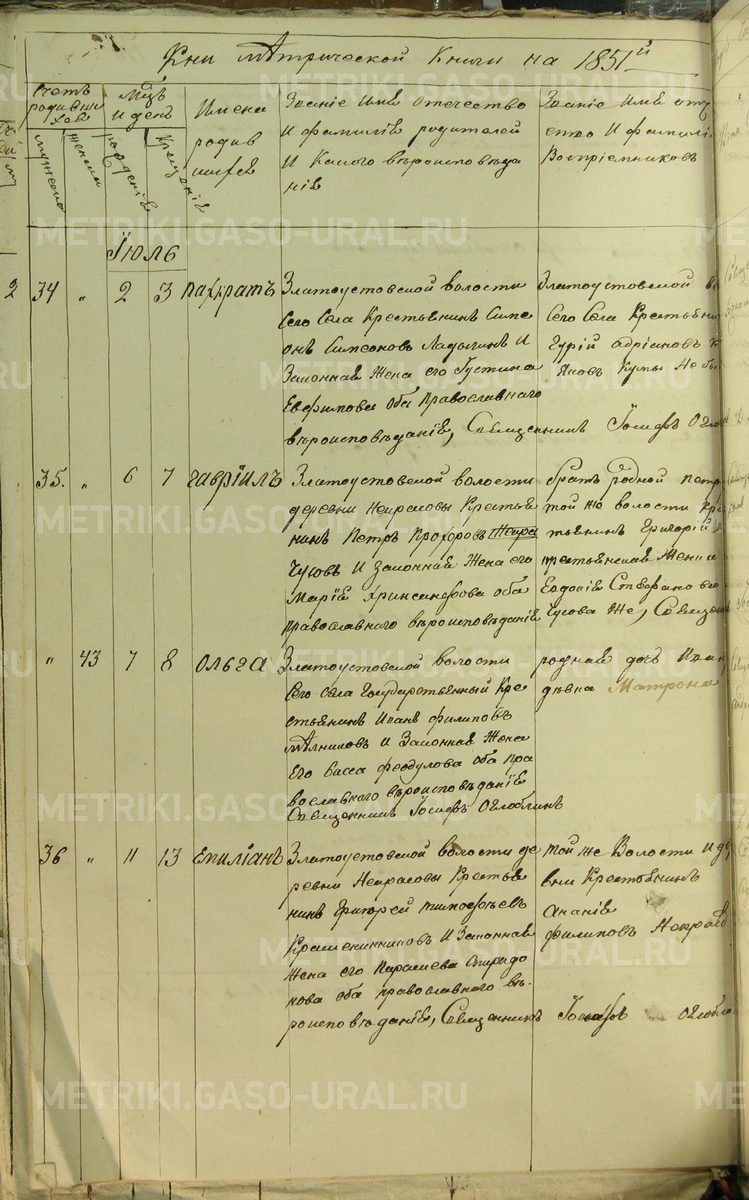 Кни мѣтрической Книги на 1851й
Счетъ родивши хсѧ
мужеска
женска
Мцъ И день
рожденіѣ
Крещеніѣ
Имена родив шихсѧ
Званіе Имѧ отечество И фамиліѧ родителей И Какого вѣроисповѣда ніѧ
Званіе Имѧ отч ество И фамиліѧ Воспріемниковъ
Іюль
34 „ 2 3 Панкратъ
Златоустовской волости
Сего Села Крестьѧнинъ Симе
онъ Симеоновъ Ладыгинъ И
Законнаѧ Жена его Густина
Евфимова оба Православнаго
вѣроисповѣданіѧ, Свѧщенникъ Іосифъ Огло
Златоустовской в
Сего Села Крестьѧни
Гурій адріановъ
ѧковъ Кумы Не бы
35. „ 6 7 гавріилъ
Златоустовской волости
деревни Некрасовы Крестьѧ
нинъ Петръ Прохоровъ
Чусовъ И Законнаѧ Жена его
Маріѧ Хрисанфова оба
православнаго вѣроисповѣданіѧ
братъ родной петр
той же волости кре
тьѧнинъ Григорій
крестьѧнскаѧ Жена
Евдокіѧ Стефанова
Чусова Же, Свѧщен
„ 43 7 8 ольга
Златоустовской волости
Сего села Государственный Кре
стьѧнинъ Иванъ филиповъ
мѣлниковъ И Законнаѧ Жена
Его Васса феодулова оба пра
вославнаго вѣроисповѣданіѧ
Свѧщенникъ Іосифъ Оглоблинъ
роднаѧ дочь Иван
Матрона
36 „ 11 13 Емиліанъ
Златоустовской волости де
ревни Некрасовы Крестьѧ
нинъ Григорей тимофѣевъ
Крашенинниковъ И Законнаѧ
Жена его Параскева Спиридо
нова оба православнаго вѣ-
роисповѣданіѧ, Свѧщенникъ Іосифъ оглобли
той же Волости И де
вни Крестьѧнинъ
Ананіѧ
филиповъ Некрасо
METRIKI.GASO-URAL.RU